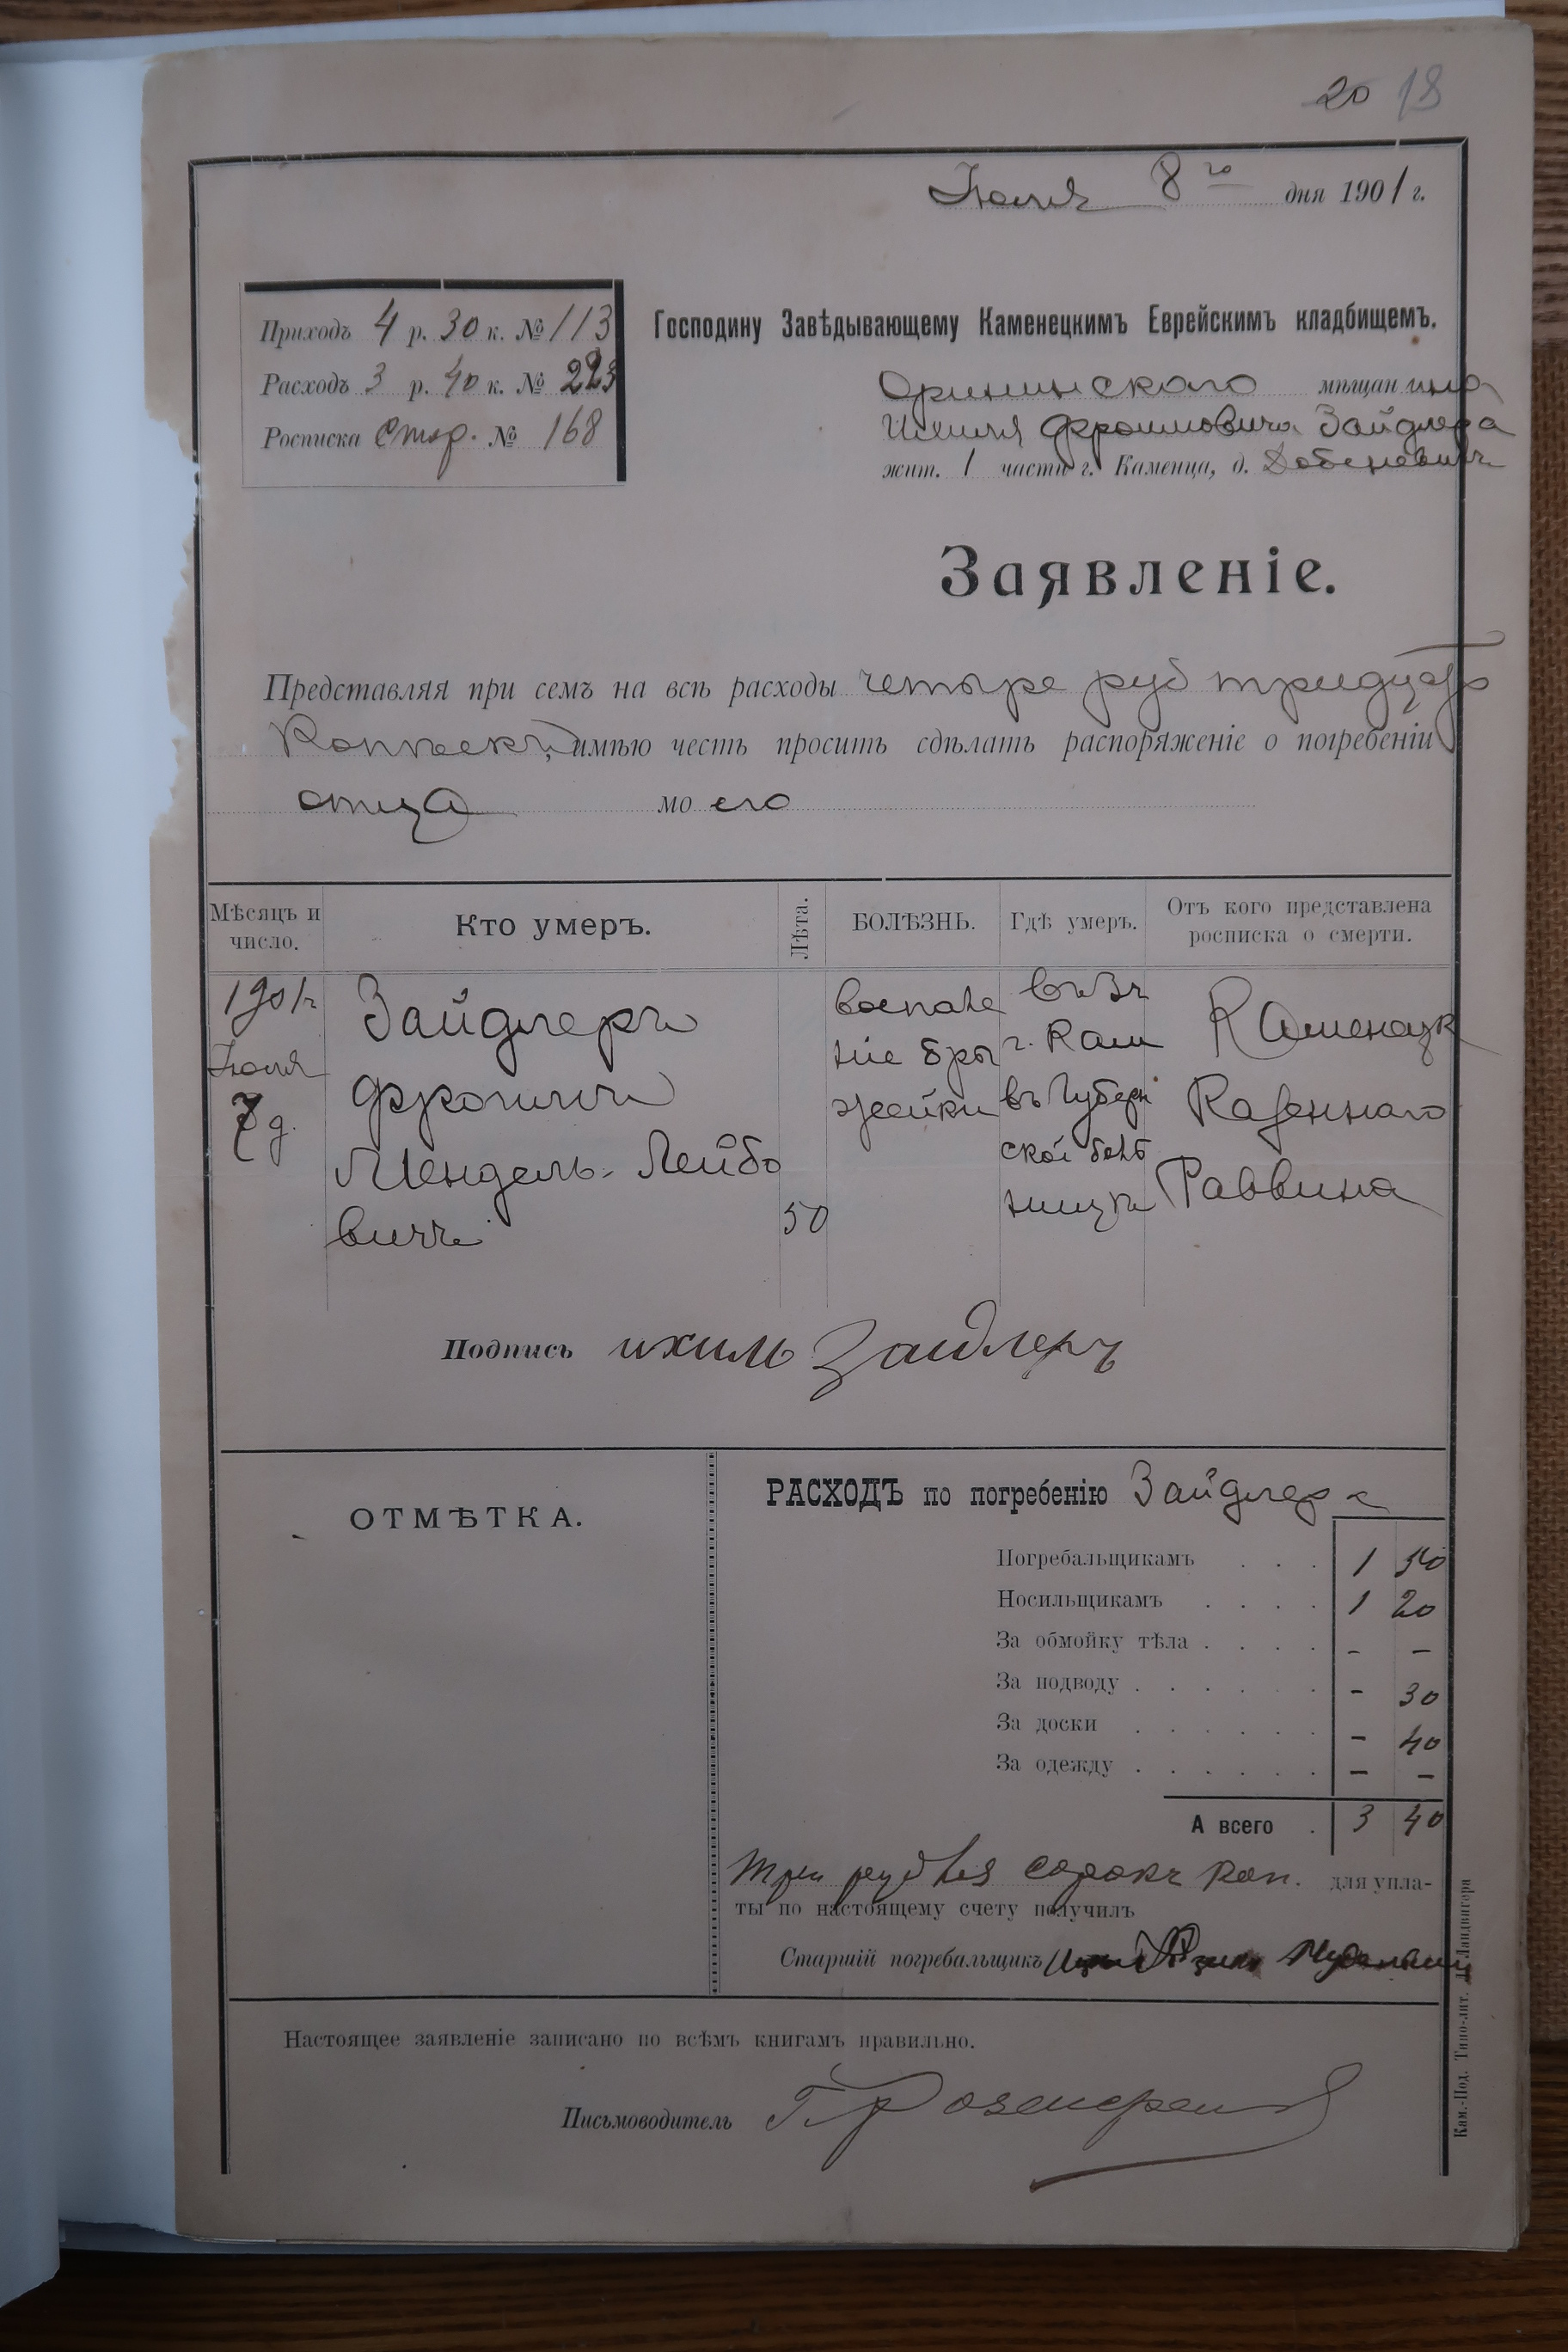 20 18
Іюля 8го дня 1901 г.
Приходъ 4 р. 30 к. № 113
Расходъ 3 р. 40 к. № 223
Росписка стор. № 168
Господину Завѣдывающему Каменецкимъ Еврейскимъ кладбищемъ.
Орининского мѣщанина
Ихиля Фроимовича Зайдлера
жит. 1 части г. Каменца, д.
Заявленіе.
Представляя при семъ на всѣ расходы четыре руб тридцать
копѣекъ, имѣю честь просить сдѣлать распоряженіе о погребеніи
отца моего
Мѣсяцъ и число.
Кто умеръ.
Лѣта.
БОЛѢЗНЬ.
Гдѣ умеръ.
Отъ кого представлена росписка о смерти.
1901г
Іюля
7 д.
Зайдлеръ
Фроимъ
Мендель-Лейбо
вичъ
50
воспале
ніе брю
шейки
г. Кам
въ Губерн
ской боль
ницѣ
Каменецк
Казеннаго
Раввина
Подпись ихиль Заидлеръ
ОТМѢТКА.
РАСХОДЪ по погребенію Зайдлера
Погребальщикамъ . . . 1 50
Носильщикамъ . . . . 1 20
За обмойку тѣла . . . . - -
За подводу . . . . . . - 30
За доски . . . . . . - 40
За одежду . . . . . . - -
А всего . 3 40
Три рубля сорокъ коп. для упла-
ты по настоящему счету получилъ
Старшій погребальщикъ
Настоящее заявленіе записано по всѣмъ книгамъ правильно.
Письмоводитель
Кам.-Под. Типо-лит. Д. Ландвигера